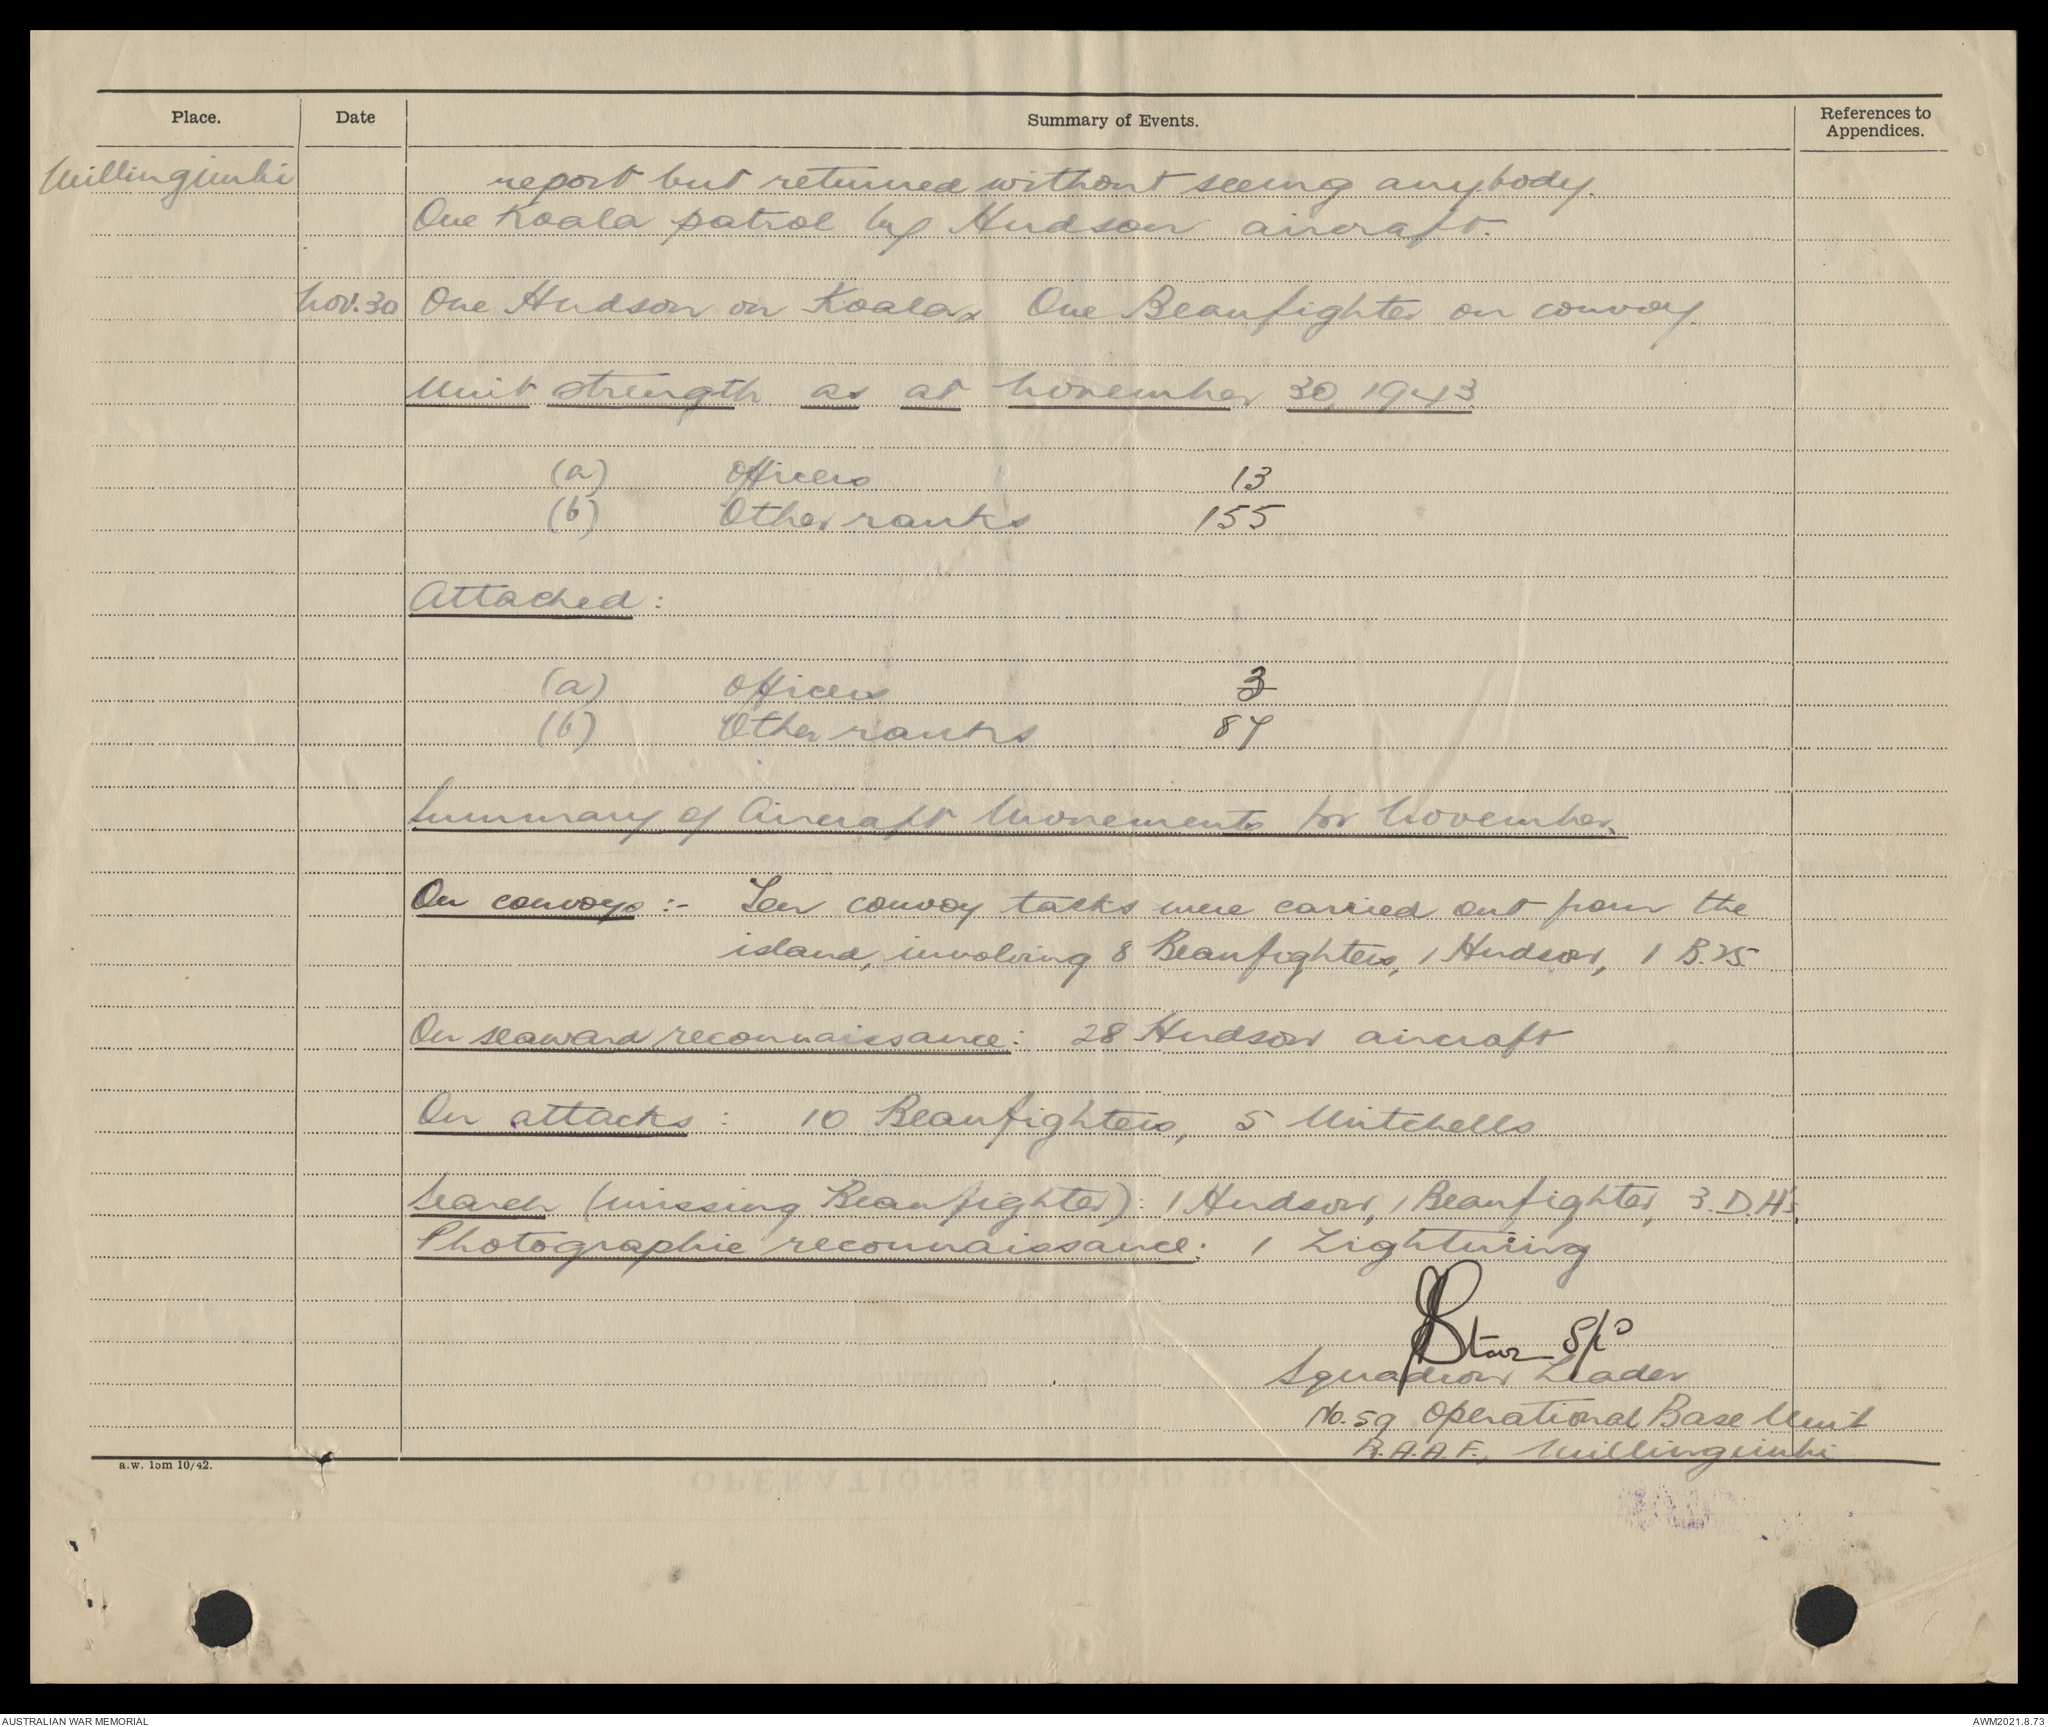 Place. Date Summary of Events. References to Appendices.
Millingimbi report but returned without seeing anybody.
One Koala patrol by Hudson aircraft.
Nov. 30 One Hudson on Koala. One Beaufighter on convoy.
Unit strength as at November 30, 1943
(a) Officers 13
(b) Other ranks 155
Attached:
(a) Officers 3
(b) Other ranks 84
Summary of Aircraft Movements for November.
On convoys :- Ten convoy tasks were carried out from the
island, involving 8 Beaufighters, 1 Hudson, 1 B.25
On seaward reconnaissance: 28 Hudson aircraft
On attacks : 10 Beaufighters, 5 Mitchells
Search (missing Beaufighter): 1 Hudson, 1 Beaufighter, 3. D.H's.
Photographic reconnaissance: 1 Lightning
Squadron Leader
No. 59 Operational Base Unit
R.A.A.F., Millingimbi
a.w. 15m 10/42.
OPERATIONS RECORD BOOK
AUSTRALIAN WAR MEMORIAL
AWM2021.8.73